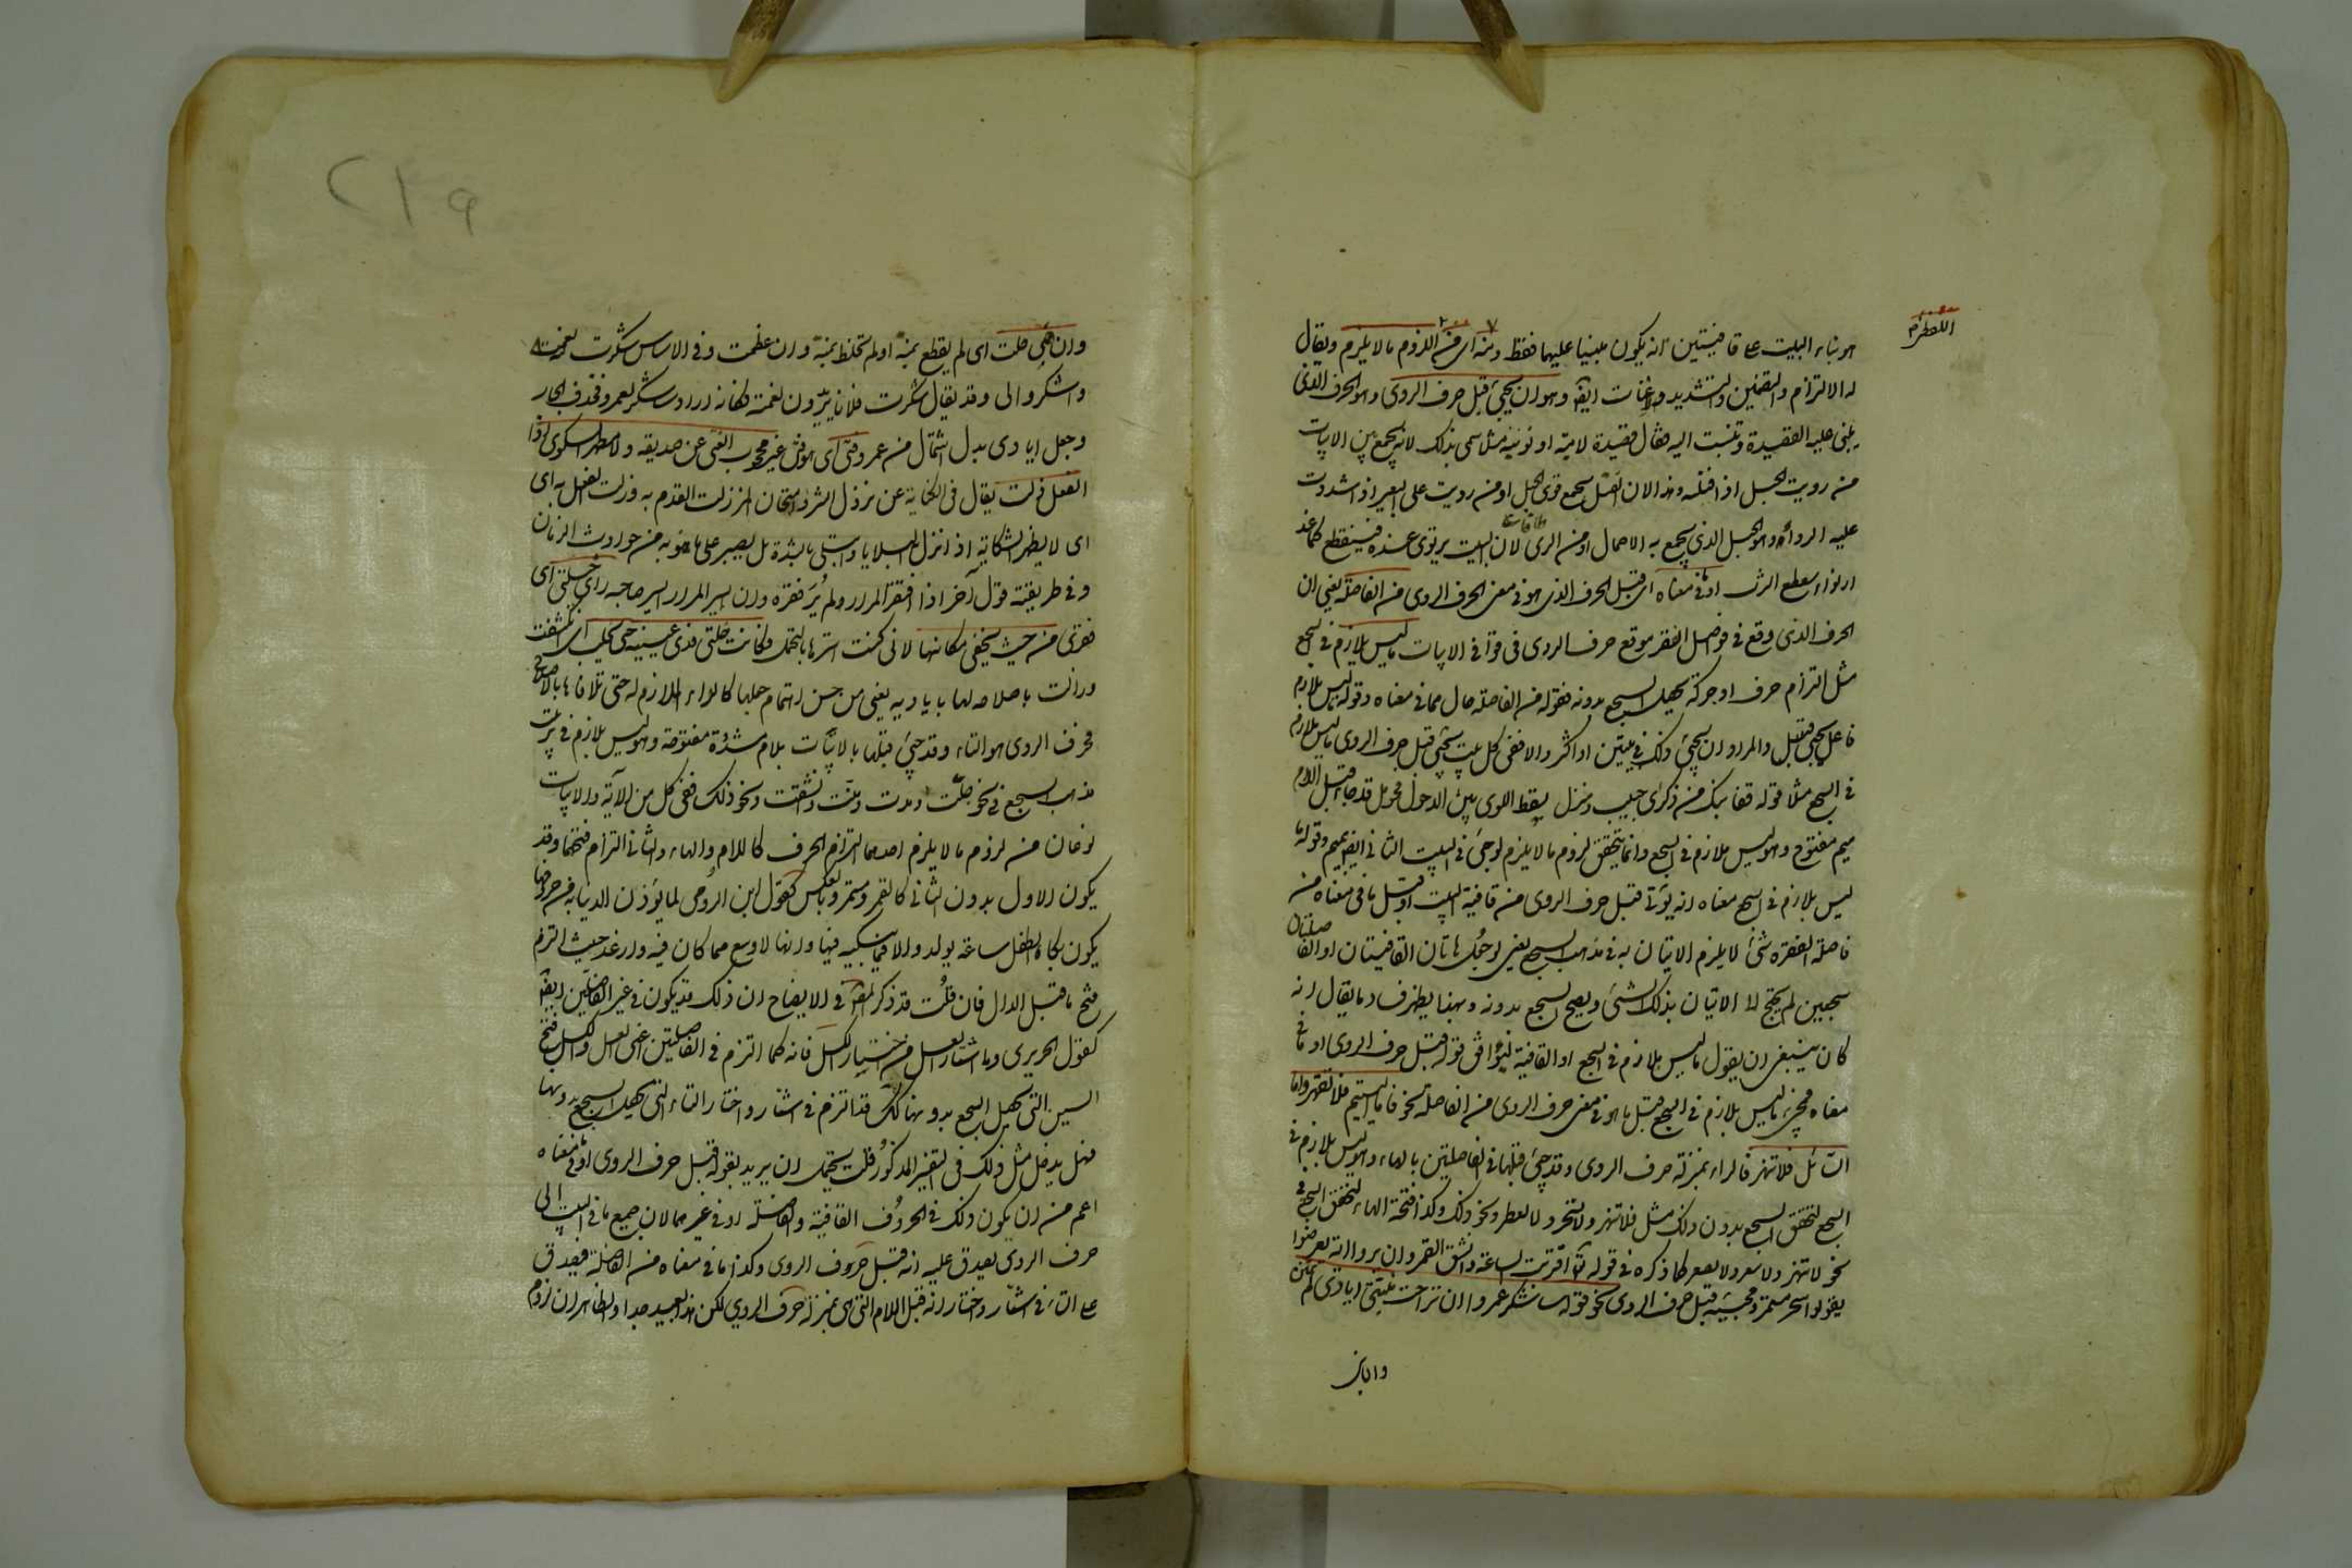 هو بناء البيت ع قافيتين انه يكون مبنيا عليهما فقط ومنه اى من اللزوم ما لا يلزم ويقال
له الالتزام والتضمين والتشديد والاعنات ايضا وهو ان يجيء قبل حرف الروى وهو الحرف الذى
يبنى عليه القصيدة وتنسب اليه فيقال قصيدة لامية او نونية مثلا سمى بذلك لانه يجمع بين الابيات
من رويت الحبل اذا فتلته وهذا لان الفتل يجمع قوى الحبل او من رويت على البعير اذا شددت
عليه الرواء وهو الحبل الذى يجمع به الاحمال او من الرى لان البيت يرتوى عنده فينقطع كما عند
او ما فى معناه اى قبل الحرف الذى هو فى معنى الحرف الروى من الفاصلة يعنى ان
الحرف الذى وقع فى فواصل الفقر موقع حرف الروى فى قوافى الابيات ما ليس بلازم فى السجع
مثل التزام حرف او حركة يحصل السجع بدونه فقوله من الفاصلة حال مما فى معناه وقوله ليس بلازم
فاعل يجيء قبل والمراد ان يجيء ذلك فى بيتين او اكثر والا ففى كل بيت يجيء قبل حرف الروى ما ليس بلازم
فى السجع مثلا قوله قفا نبك من ذكرى حبيب ومنزل بسقط اللوى بين الدخول فحومل قد جاء قبل اللام
ميم مفتوح وهو ليس بلازم فى السجع وانما يتحقق لزوم ما لا يلزم لو جىء فى البيت الثانى ايضا بميم وقوله ما
ليس بلازم فى السجع معناه انه يؤتى قبل حرف الروى من قافية البيت او قبل ما فى معناه من
فاصلة الفقرة شىء لا يلزم الاتيان به فى مذهب السجع يعنى لو جعل هاتان القافيتان او الفاصلتان
سجعين لم يحتج الى الاتيان بذلك الشىء ويصح السجع بدونه وبهذا يظهر فساد ما يقال انه
كان ينبغى ان يقول ما ليس بلازم فى السجع او القافية ليوافق قوله قبل حرف الروى او ما فى
معناه فمجىء ما ليس بلازم فى السجع قبل ما هو فى معنى حرف الروى من الفاصلة نحو فاما اليتيم فلا تقهر واما
السائل فلا تنهر فالراء بمنزلة حرف الروى وقد جىء قبلها فى الفاصلتين بالهاء وهو ليس بلازم فى
السجع لتحقق السجع بدون ذلك مثل فلا تنهر ولا تسخر ولا تعطر ونحو ذلك وكذا فتحة الهاء لتحقق السجع فى
نحو لا تنهر ولا تبصر ولا تصغر كما ذكره فى قوله تعالى اقتربت الساعة وانشق القمر وان يروا آية يعرضوا
يقولوا سحر مستمر ومجيئه قبل حرف الروى نحو قوله ساشكر عمروا ان تراخت منيتى ايادى لم تمنن
وان هى
وان هى جلت اى لم يقطع بمنة او لم تخلط بمنة وان عظمت وفى الاساس شكرت لله نعمته
واشكروا لى وقد يقال شكرت فلانا يريدون نعمة فكانه اراد ساشكر لعمرو فحذف الجار
وجعل ايادى بدل اشتمال من عمرو فتى اى هو فتى غير محجوب الغنى عن صديقه ولا مظهر الشكوى اذا
النعل زلت يقال فى الكناية عن نزول الشر وامتحان المرء زلت القدم به وزلت النعل به اى
اى لا يظهر الشكاية اذا نزل به البلايا وابتلى بالشدة بل يصبر على ما ينوبه من حوادث الزمان
وفى طريقته قول آخر اذا افتقر المرار لم ير فقره وان ايسر المرار ايسر صاحبه راى خلتى اى
فقرى من حيث يخفى مكانها لانى كنت استرها بالتجمل فكانت خلتى قذى عينيه حتى تجلت اى انكشفت
وزالت باصلاحه لها باياديه يعنى من حسن اهتمام جعلها كالداء الملازم له حتى تلافاها بالاصلاح
فحرف الروى هو التاء وقد جىء قبلها بالابيات بلام مشددة مفتوحة وهو ليس بلازم فى
مذهب السجع فى نحو جلت ومدت ومنت وانشقت ونحو ذلك ففى كل من الآية والابيات
نوعان من لزوم ما لا يلزم احدهما التزام الحرف كاللام والهاء والثانى التزام فتحهما وقد
يكون الاول بدون الثانى كالقمر ومستمر وبالعكس كقول ابن الرومى لما تؤذن الدنيا به من صروفها
يكون بكاء الطفل ساعة يولد والا فما يبكيه فيها وانها لاوسع مما كان فيه وارغد حيث التزم
فتح ما قبل الدال فان قلت قد ذكر المص فى الايضاح ان ذلك قد يكون فى غير الفاصلتين ايضا
كقول الحريرى وما اشتار العسل من اختار الكسل فانه كما التزم فى الفاصلتين اعنى العسل والكسل فتح
السين التى يحصل السجع بدونها كذلك قد التزم فى اشتار واختار التاء التى يحصل السجع بدونها
فهل يدخل مثل ذلك فى التفسير المذكور قلت يحتمل ان يريد بقوله قبل حرف الروى او ما فى معناه
اعم من ان يكون ذلك فى الحروف القافية والفاصلة او فى غيرهما لان جميع ما فى البيت الى
حرف الروى يصدق عليه انه قبل حرف الروى وكذا ما فى معناه من الفاصلة فيصدق
ع التاء فى اشتار واختار انه قبل اللام التى هى بمنزلة حرف الروى لكن هذا بعيد جدا والظاهر ان لزوم
٢١٩